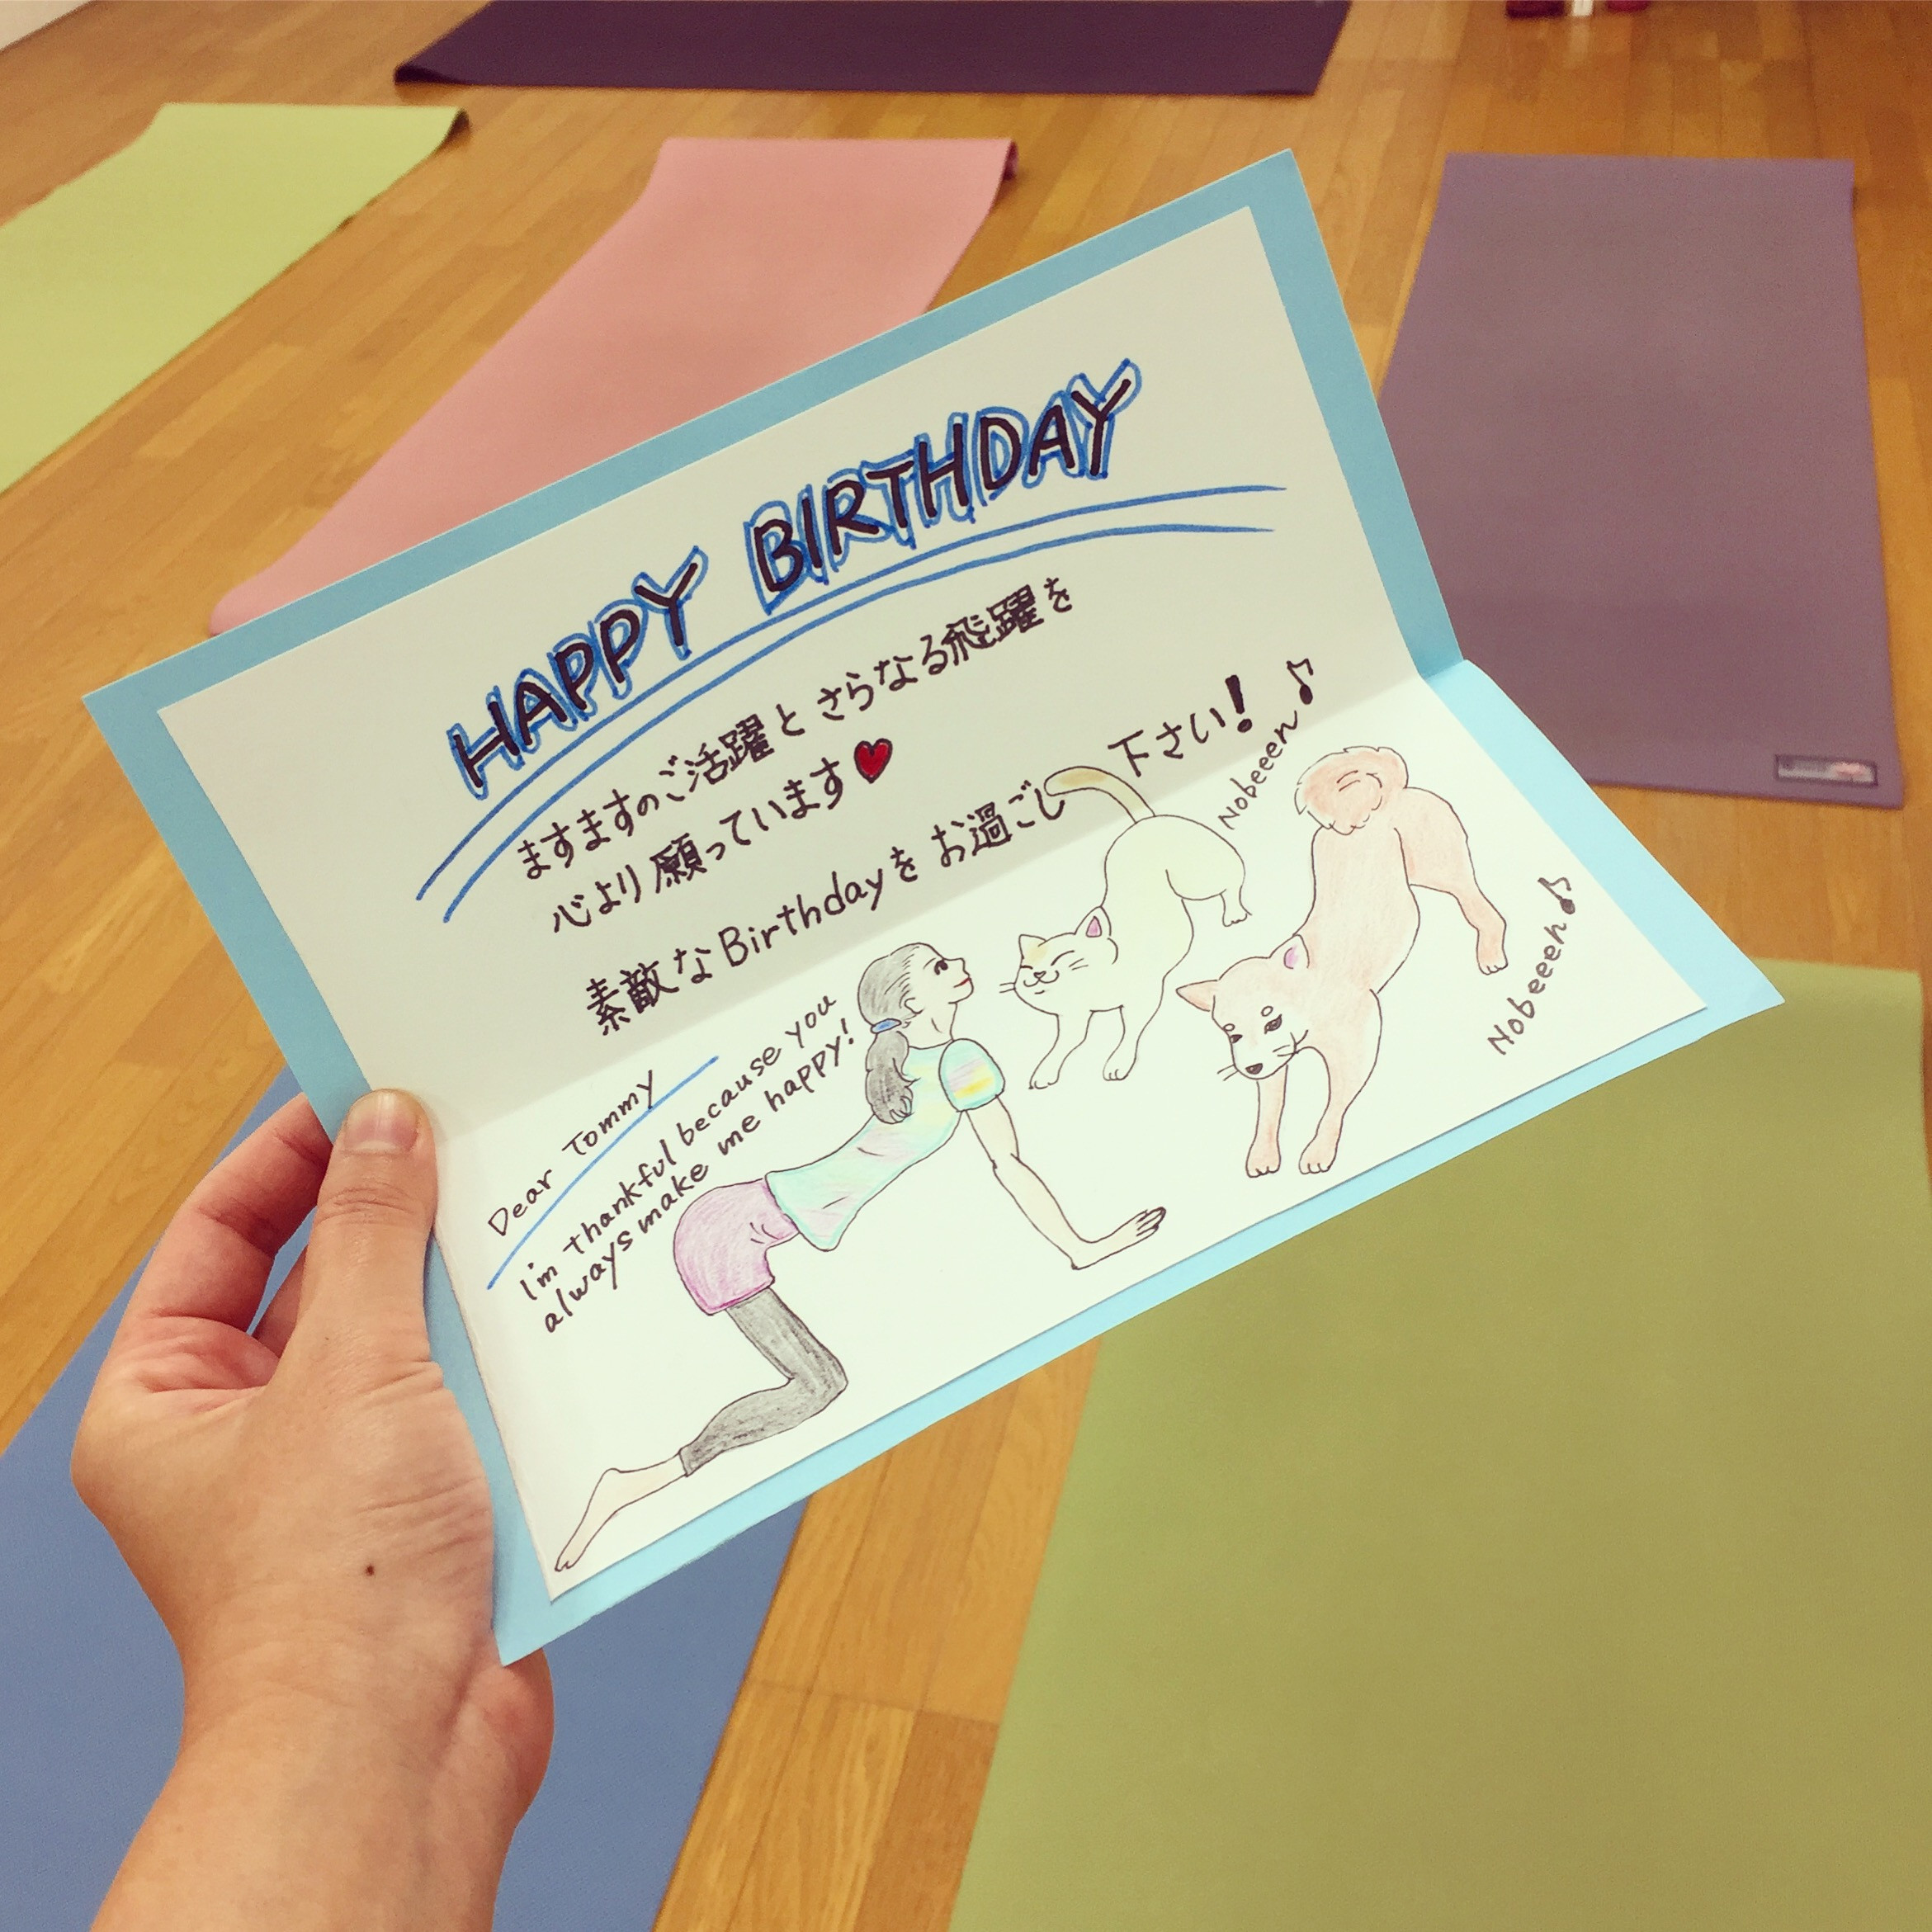 HAPPY BIRTHDAY
ますますのご活躍とさらなる飛躍を
心より願っています♥
素敵なBirthdayをお過ごし下さい!
Nobeeen♪
Nobeeen♪
Dear Tommy
I'm thankful because you
always make me happy!